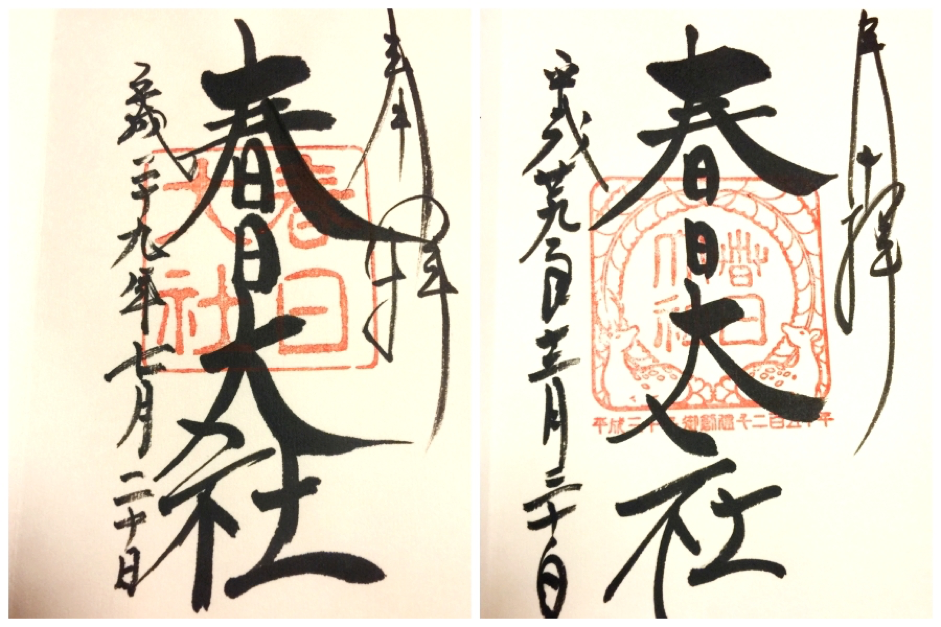 奉拝
春日大社
平成二十九年七月二十日
春日
大社
奉拝
春日大社
平成廿九年十二月二十日
春日
大社
平成三十年 千二百五十年